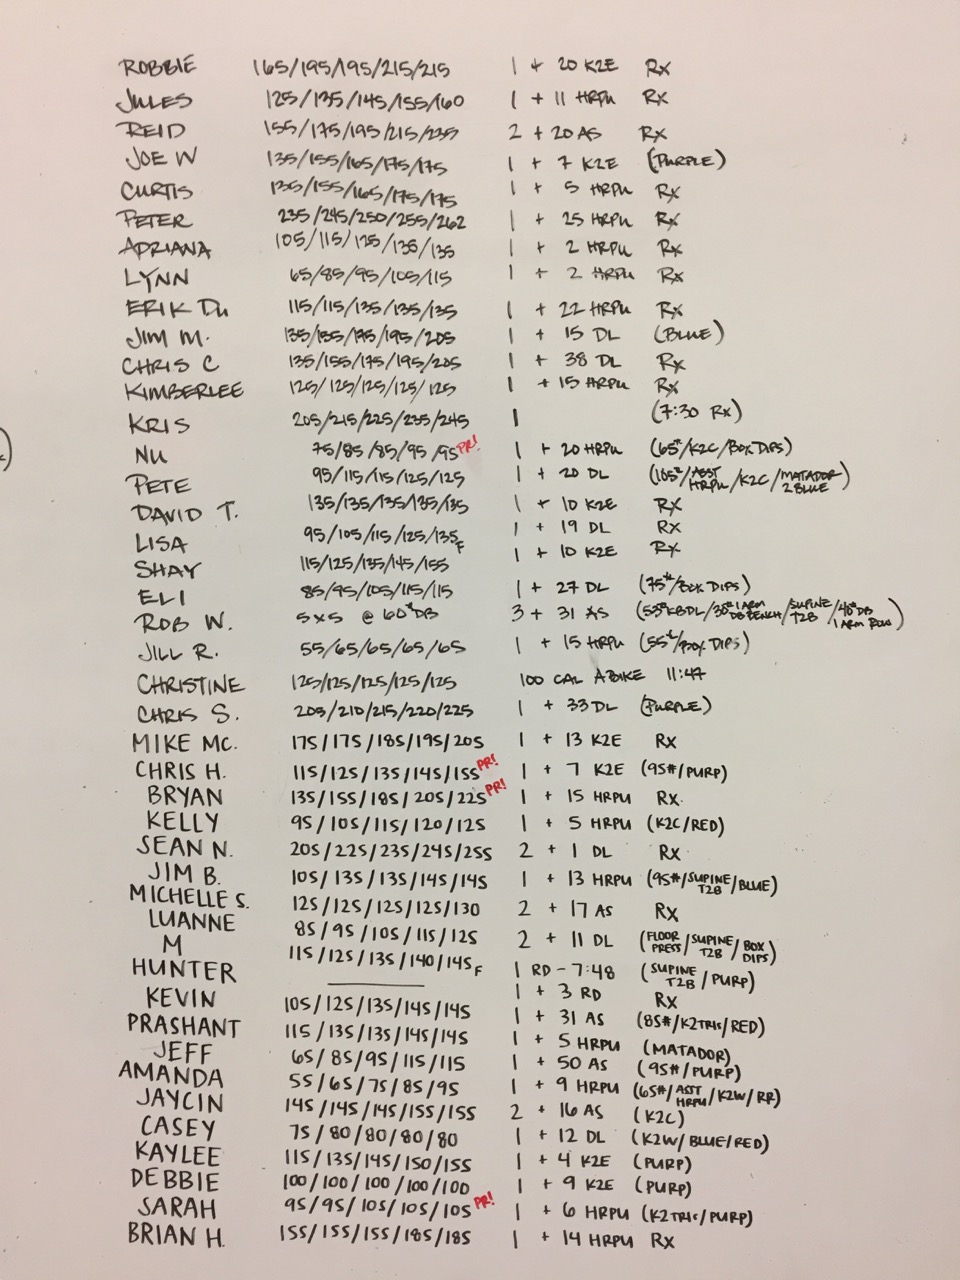 ROBBIE 165/195/195/215/215 1 + 20 K2E Rx
JULES 125/135/145/155/160 1 + 11 HRPU Rx
REID 155/175/195/215/235 2 + 20 AS Rx
JOE W 135/155/165/175/175 1 + 7 K2E (PURPLE)
CURTIS 135/155/165/175/175 1 + 5 HRPU Rx
PETER 235/245/250/255/262 1 + 25 HRPU Rx
ADRIANA 105/115/125/135/135 1 + 2 HRPU Rx
LYNN 65/85/95/105/115 1 + 2 HRPU Rx
ERIK DU 115/115/135/135/135 1 + 22 HRPU Rx
JIM M. 135/155/175/195/205 1 + 15 DL (BLUE)
CHRIS C 135/155/175/195/205 1 + 38 DL Rx
KIMBERLEE 125/125/125/125/125 1 + 15 HRPU Rx
KRIS 205/215/225/235/245 1 (7:30 Rx)
NU 75/85/85/95/95 PR! 1 + 20 HRPU (65#/K2C/BOX DIPS)
PETE 95/115/115/125/125 1 + 20 DL (105#/ASST HRPU/K2C/MATADOR 2 BLUE)
DAVID T. 135/135/135/135/135 1 + 10 K2E Rx
LISA 95/105/115/125/135F 1 + 19 DL Rx
SHAY 115/125/135/145/155 1 + 10 K2E Rx
ELI 85/95/105/115/115 1 + 27 DL (75#/BOX DIPS)
ROB W. 5x5 @ 60# DB 3 + 31 AS (53# KBDL/30# 1 ARM DB BENCH/SUPINE T2B/40# DB 1 ARM ROW)
JILL R. 55/65/65/65/65 1 + 15 HRPU (55#/BOX DIPS)
CHRISTINE 125/125/125/125/125 100 CAL ABIKE 11:47
CHRIS S. 205/210/215/220/225 1 + 33 DL (PURPLE)
MIKE MC. 175/175/185/195/205 1 + 13 K2E Rx
CHRIS H. 115/125/135/145/155 PR! 1 + 7 K2E (95#/PURP)
BRYAN 135/155/185/205/225 PR! 1 + 15 HRPU Rx.
KELLY 95/105/115/120/125 1 + 5 HRPU (K2C/RED)
SEAN N. 205/225/235/245/255 2 + 1 DL Rx
JIM B. 105/135/135/145/145 1 + 13 HRPU (95#/SUPINE T2B/BLUE)
MICHELLE S. 125/125/125/125/130 2 + 17 AS Rx
LUANNE 85/95/105/115/125 2 + 11 DL (FLOOR PRESS/SUPINE T2B/BOX DIPS)
M 115/125/135/140/145F 1 RD - 7:48 (SUPINE T2B/PURP)
HUNTER 1 + 3 RD Rx
KEVIN 105/125/135/145/145 1 + 31 AS (85#/K2TRIS/RED)
PRASHANT 115/135/135/145/145 1 + 5 HRPU (MATADOR)
JEFF 65/85/95/115/115 1 + 50 AS (95#/PURP)
AMANDA 55/65/75/85/95 1 + 9 HRPU (65#/ASST HRPU/K2W/RR)
JAYCIN 145/145/145/155/155 2 + 16 AS (K2C)
CASEY 75/80/80/80/80 1 + 12 DL (K2W/BLUE/RED)
KAYLEE 115/135/145/150/155 1 + 4 K2E (PURP)
DEBBIE 100/100/100/100/100 1 + 9 K2E (PURP)
SARAH 95/95/105/105/105 PR! 1 + 6 HRPU (K2TRIS/PURP)
BRIAN H. 155/155/155/185/185 1 + 14 HRPU Rx